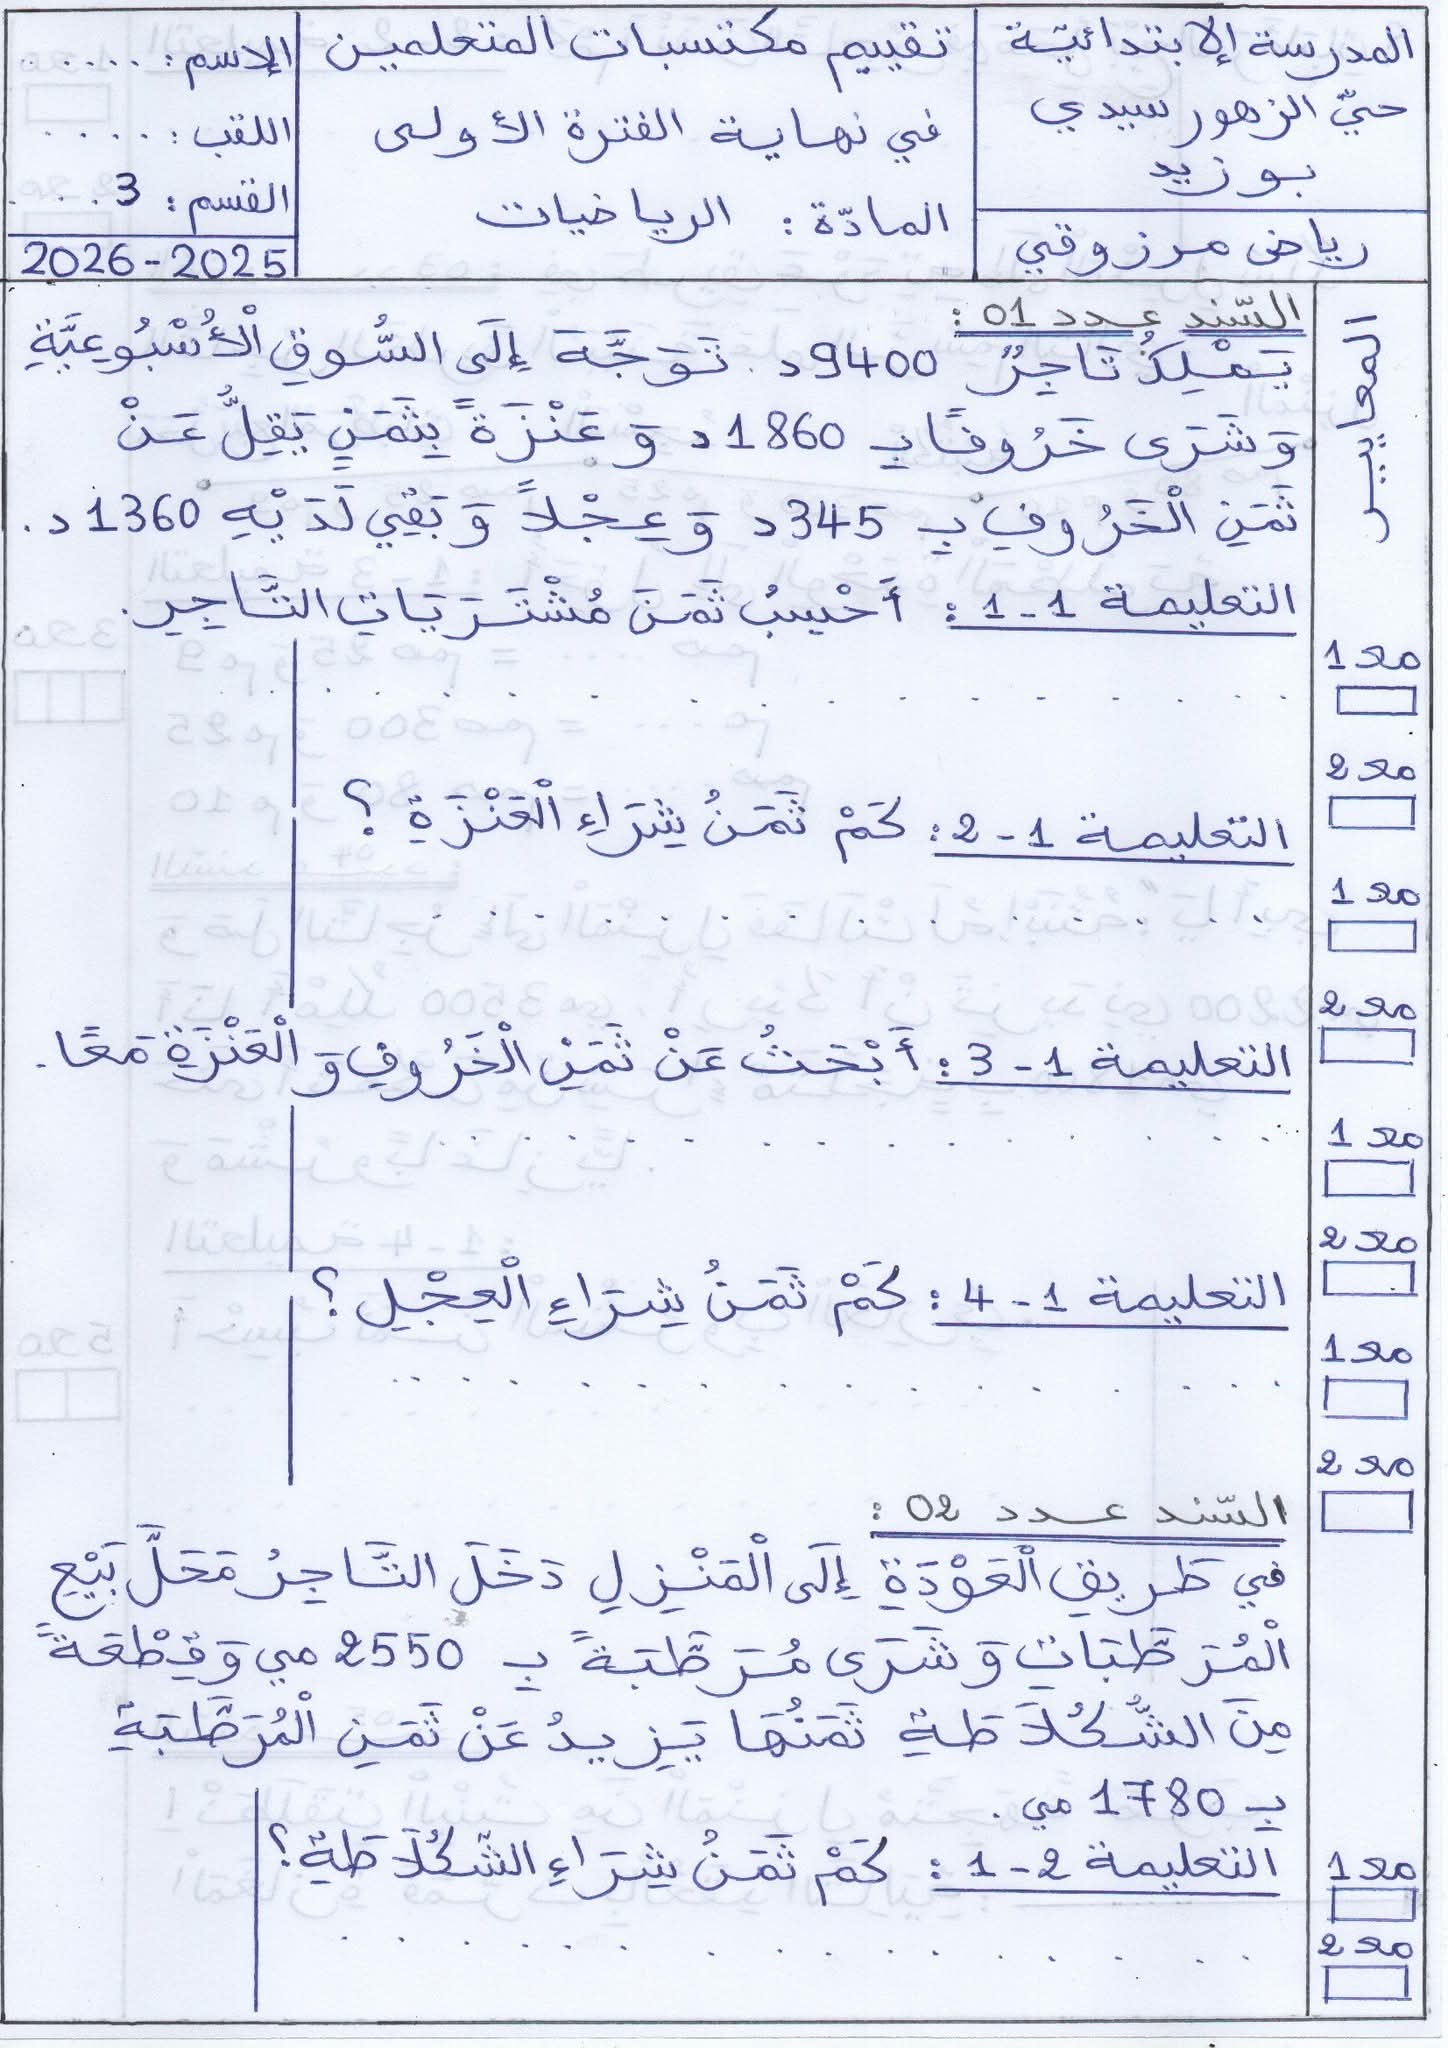 المدرسة الإبتدائيّة
حيّ الزهور سيدي
بوزيد
رياض مرزوقي
تقييم مكتسبات المتعلمين
في نهاية الفترة الأولى
المادّة: الرياضيات
الإسم: . . . . .
اللقب: . . . . .
القسم: 3 . . .
2025-2026
المعايير
السّند عـدد 01 :
يَمْلِكُ تَاجِرٌ 9400د. تَوَجَّهَ إِلَى السُّوقِ الْأُسْبُوعِيَّةِ
وَشَرَى خَرُوفًا بِ 1860د وَ عَنْزَةً بِثَمَنٍ يَقِلُّ عَنْ
ثَمَنِ الْخَرُوفِ بِ 345د وَ عِجْلاً وَ بَقِيَ لَدَيْهِ 1360د.
التعليمة 1-1: أَحْسِبُ ثَمَنَ مُشْتَرَيَاتِ التَّاجِرِ.
مع 1
مع 2
التعليمة 1-2: كَمْ ثَمَنُ شِرَاءِ الْعَنْزَةِ ؟
مع 1
مع 2
التعليمة 1-3: أَبْحَثُ عَنْ ثَمَنِ الْخَرُوفِ وَ الْعَنْزَةِ مَعًا.
مع 1
مع 2
التعليمة 1-4: كَمْ ثَمَنُ شِرَاءِ الْعِجْلِ ؟
مع 1
مع 2
السّند عـدد 02 :
في طَرِيقِ الْعَوْدَةِ إِلَى الْمَنْزِلِ دَخَلَ التَّاجِرُ مَحَلَّ بَيْعِ
الْمُرَطَّبَاتِ وَ شَرَى مُرَطَّبَةً بِ 2550 مي وَ قِطْعَةً
مِنَ الشُّكُلَاطَةِ ثَمَنُهَا يَزِيدُ عَنْ ثَمَنِ الْمُرَطَّبَةِ
بِ 1780 مي.
التعليمة 2-1: كَمْ ثَمَنُ شِرَاءِ الشُّكُلَاطَةِ؟
مع 1
مع 2